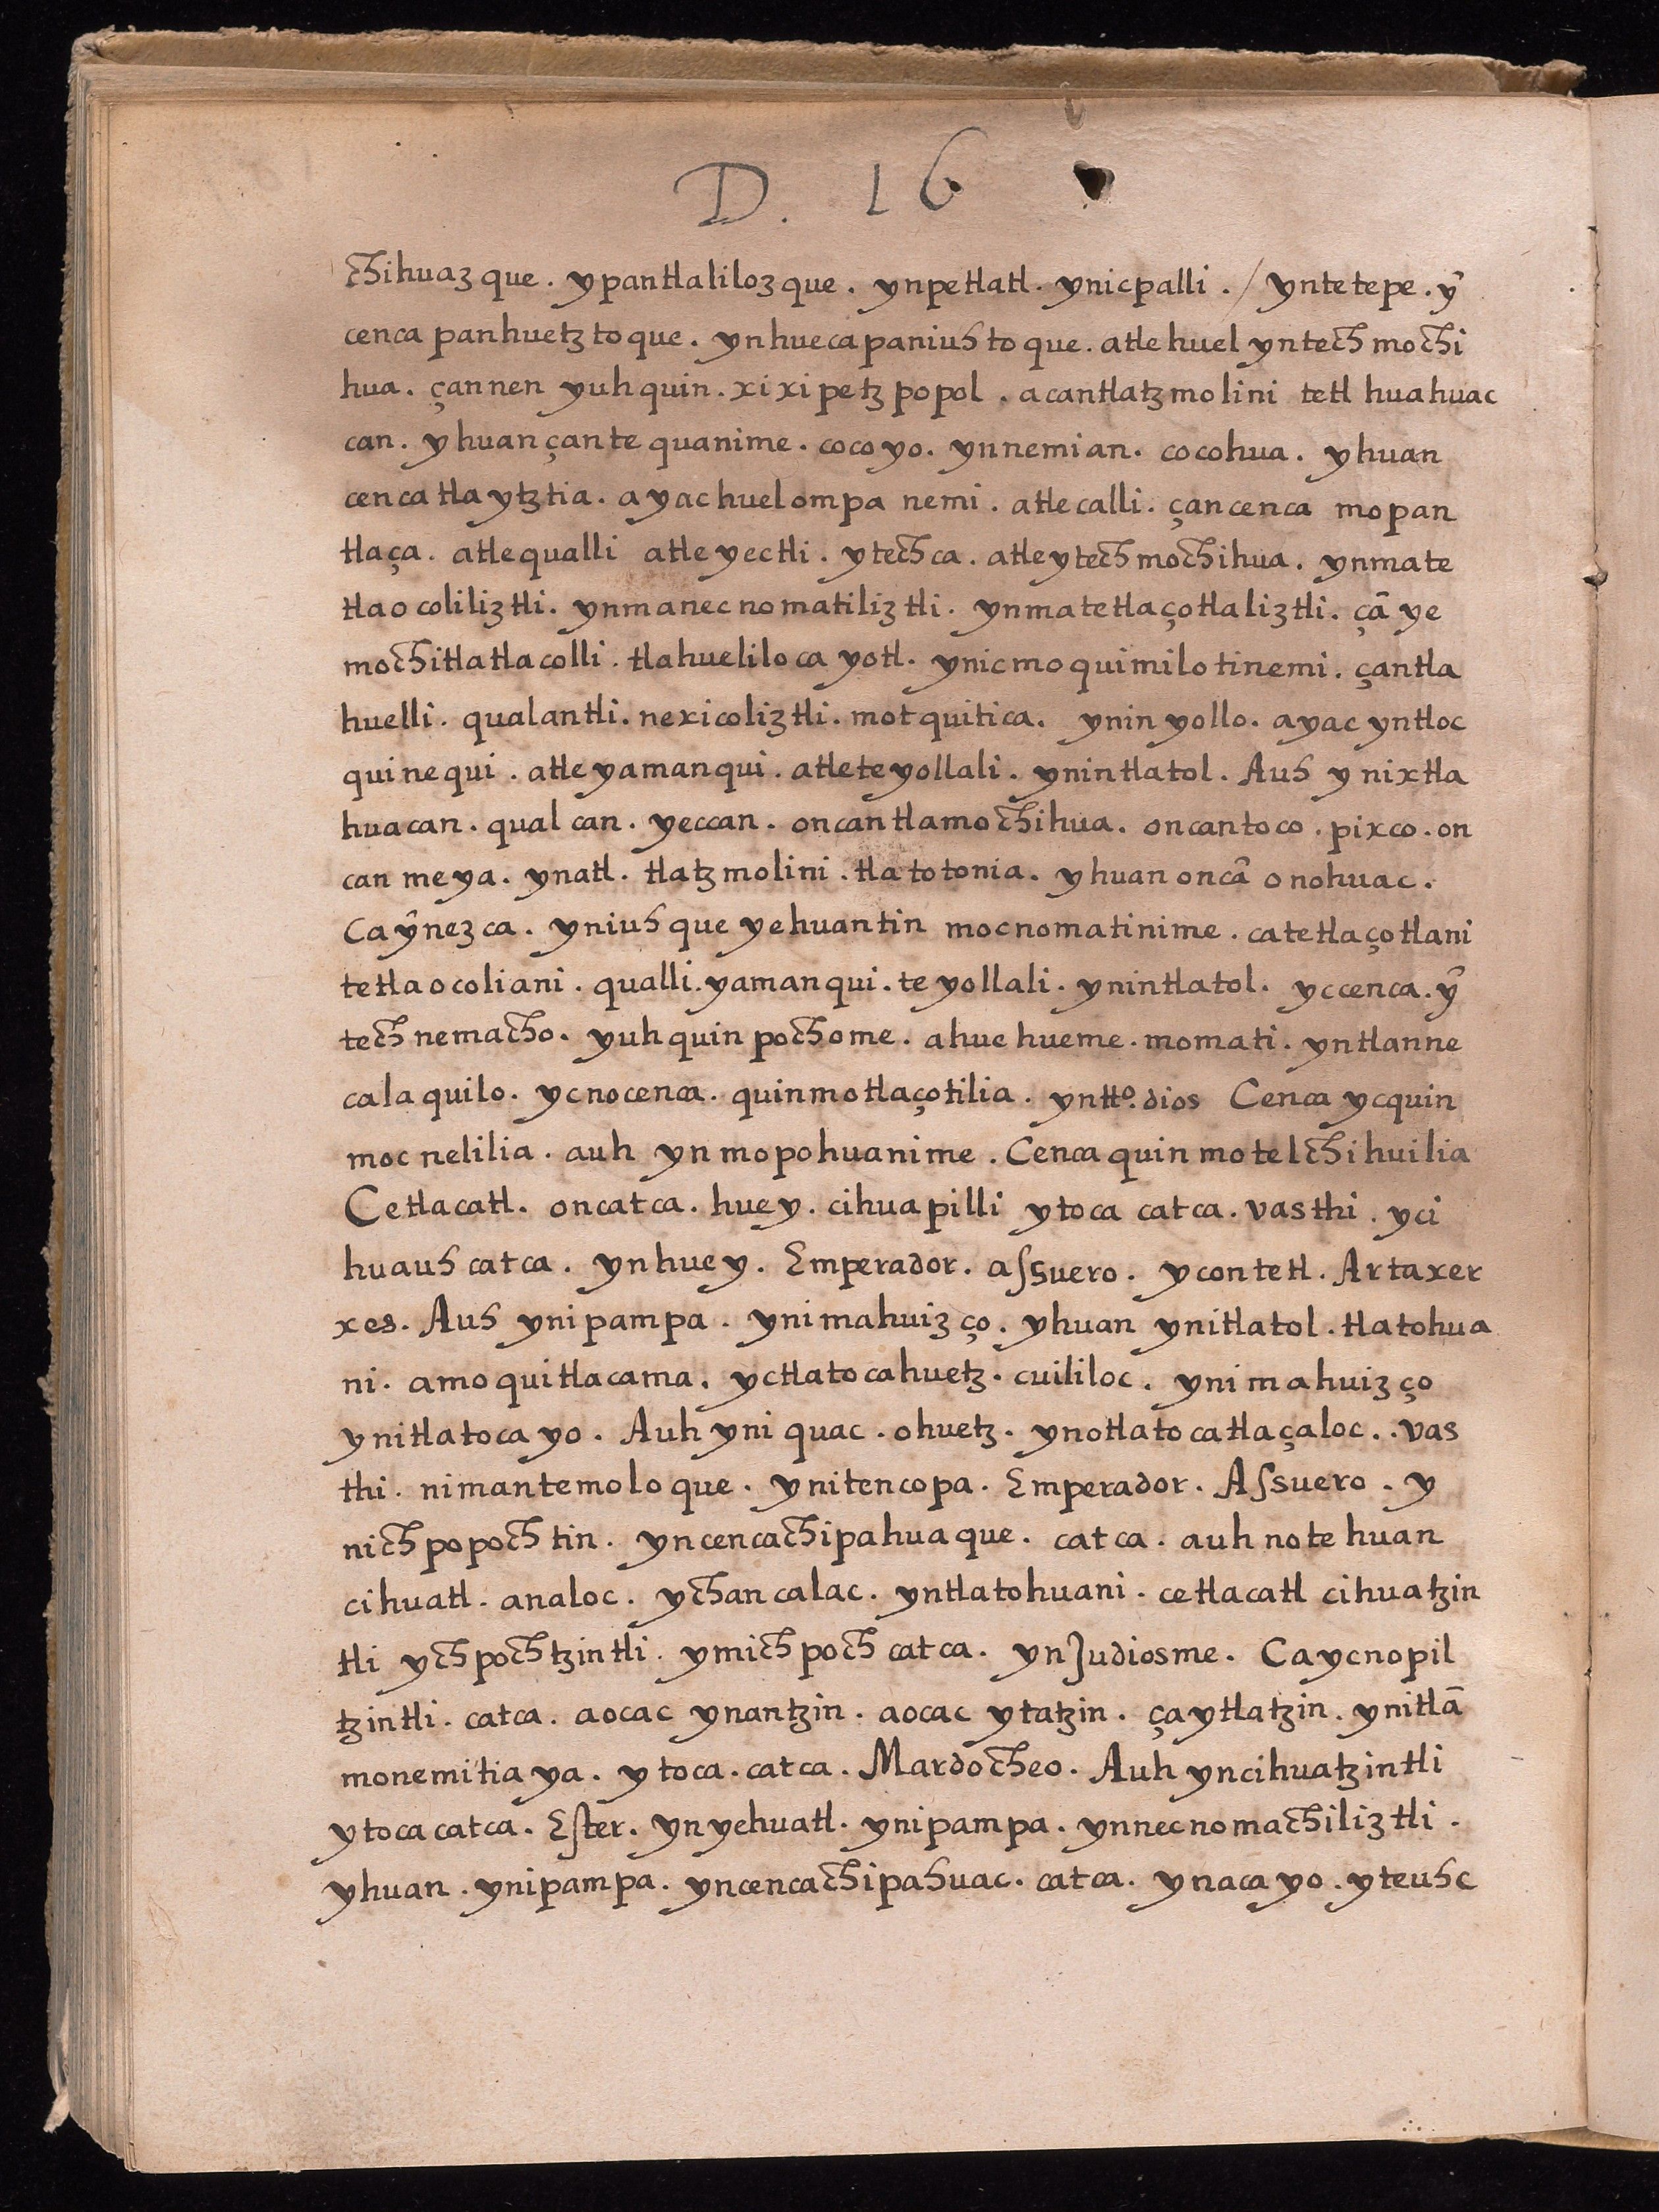 D. 16
chihuazque. ypantlalilozque. ynpetlatl. ynicpalli. / yntetepe. yn̄
cenca panhuetztoque. ynhuecapaniuhtoque. atlehuel yntech mochi
hua. çannen yuhquin. xixipetzpopol. acantlatzmolini tetl huahuac
can. yhuançantequanime. cocoyo. ynnemian. cocohua. yhuan
cencatlaytztia. ayachuelompa nemi. atlecalli. çancenca mopan
tlaça. atlequalli atleyectli. ytechca. atleytechmochihua. ynmate
tlaocoliliztli. ynmanecnomatiliztli. ynmatetlaçotlaliztli. çā ye
mochitlatlacolli. tlahuelilocayotl. ynicmoquimilotinemi. çantla
huelli. qualantli. nexicoliztli. motquitica. yninyollo. ayac yntloc
quinequi. atleyamanqui. atleteyollali. ynintlatol. Auh ynixtla
huacan. qualcan. yeccan. oncantlamochihua. oncantoco. pixco. on
can meya. ynatl. tlatzmolini. tlatotonia. yhuan oncā onohuac.
Caȳnezca. yniuhque yehuantin mocnomatinime. catetlaçotlani
tetlaocoliani. qualli. yamanqui. teyollali. ynintlatol. yccenca. ȳ
technemacho. yuhquin pochome. ahuehueme. momati. yntlanne
calaquilo. ycnocenca. quinmotlaçotilia. yntto. dios Cenca ycquin
mocnelilia. auh ynmopohuanime. Cencaquinmotelchihuilia
Cetlacatl. oncatca. huey. cihuapilli ytoca catca. vasthi. yci
huauh catca. ynhuey. Emperador. aſsuero. ycontetl. Artaxer
xes. Auh ynipampa. ynimahuizço. yhuan ynitlatol. tlatohua
ni. amoquitlacama. yctlatocahuetz. cuililoc. ynimahuizço
ynitlatocayo. Auh yniquac. ohuetz. ynotlatocatlaçaloc.. vas
thi. nimantemoloque. ynitencopa. Emperador. Aſsuero. y
nichpopochtin. yncencachipahuaque. catca. auh notehuan
cihuatl. analoc. ychan calac. yntlatohuani. cetlacatl cihuatzin
tli ychpochtzintli. ymichpoch catca. ynJudiosme. Caycnopil
tzintli. catca. aocac ynantzin. aocac ytatzin. çaytlatzin. ynitlā
monemitiaya. ytoca. catca. Mardocheo. Auh yncihuatzintli
ytocacatca. Eſter. ynyehuatl. ynipampa. ynnecnomachiliztli.
yhuan. ynipampa. yncencachipahuac. catca. ynacayo. yteuhc